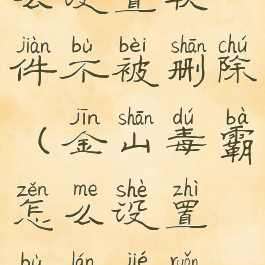 么设置软
jiàn bù bèi shān chú
件不被删除
jīn shān dú bà
（金山毒霸
zěn me shè zhì
怎么设置
bù lán jié ruǎn